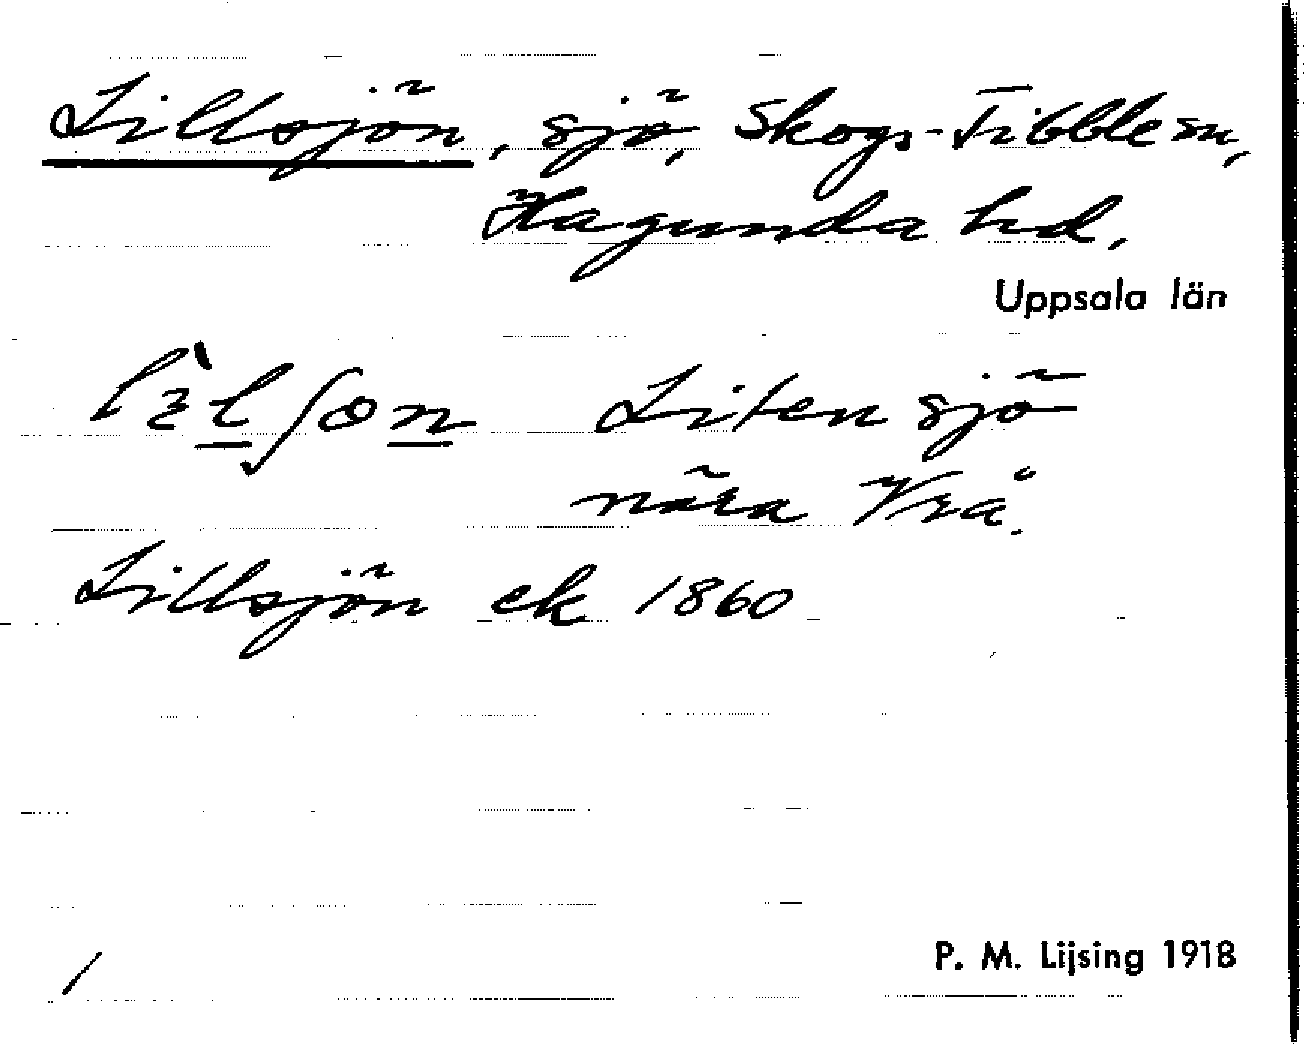 Lillsjön, sjö, Skogs-Tibble sn,
Hagunda hd.
Uppsala län
Liten sjö
nära Vrå.
Lillsjön ek 1860
/
P. M. Lijsing 1918